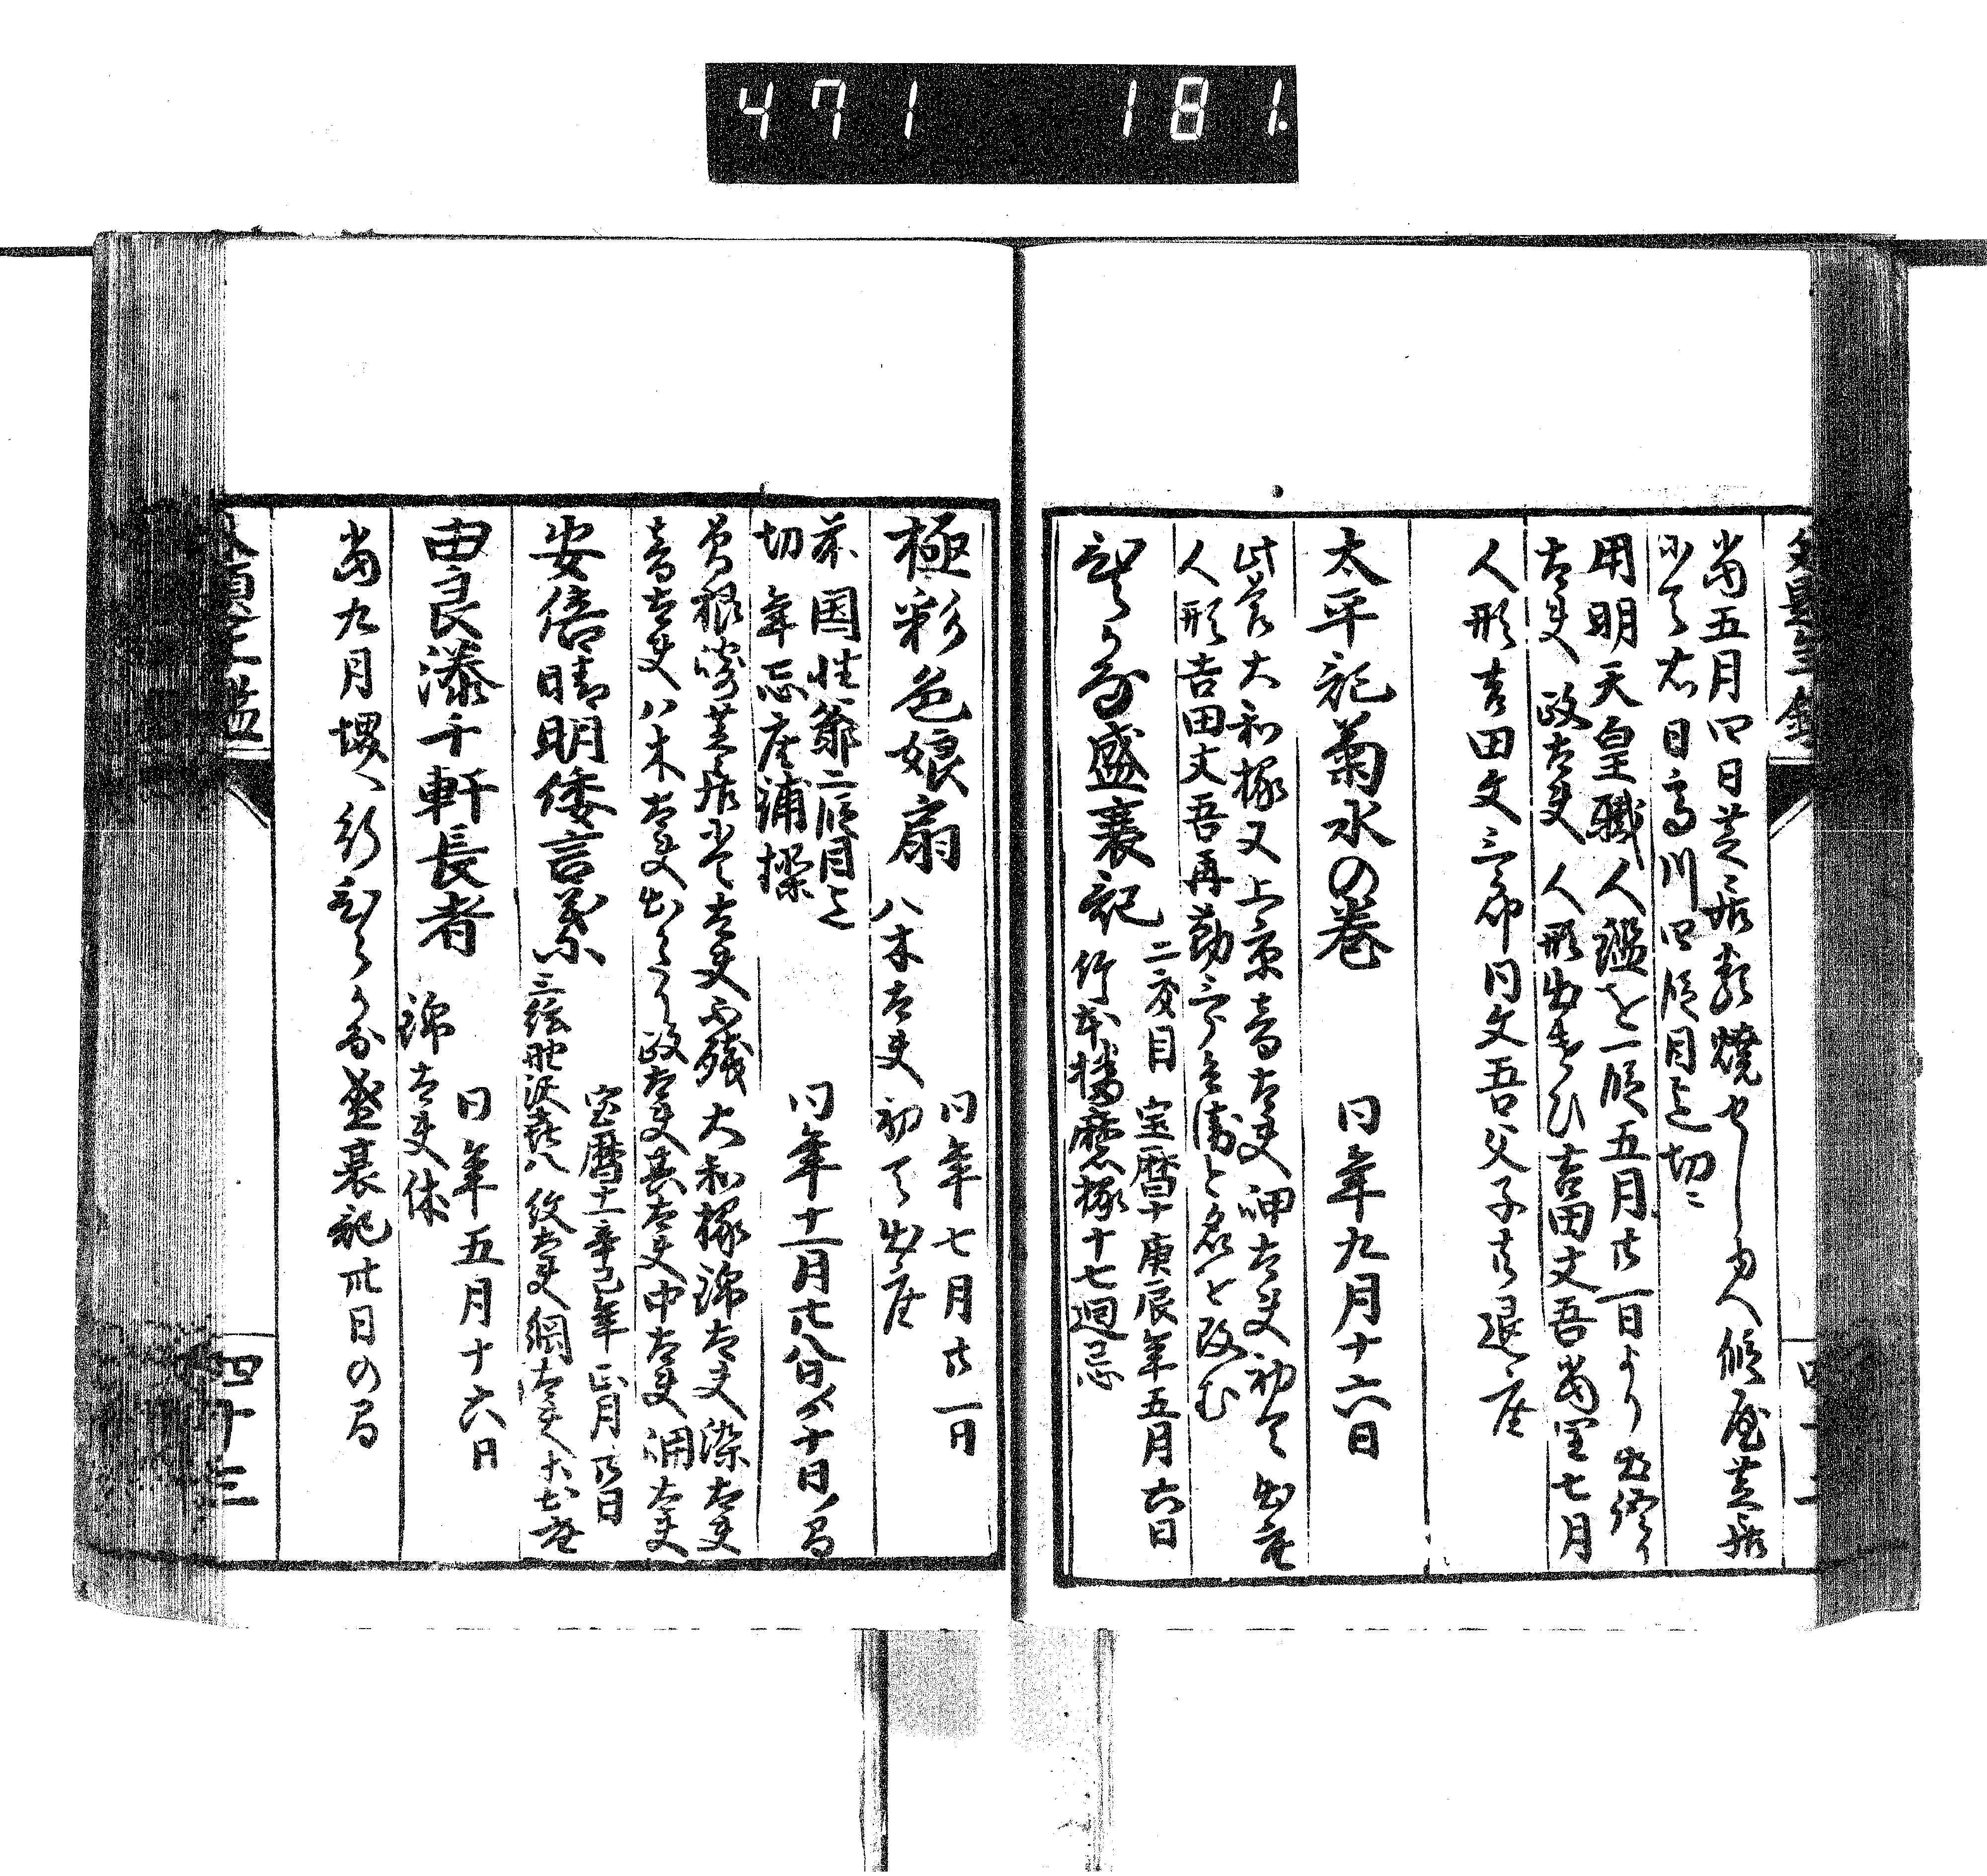 471 181.
当五月四日芝居類焼せしゆへ仮屋芝居
にて右日高川四段目迄切ニ
用明天皇職人鑑を一段五月廿一日より出
太夫 政太夫 人形出づかひ吉田文吾当申七月
人形吉田文三郎同文吾父子共退座
太平記菊水の巻 同年九月十六日
此節大和掾又上京音太夫 岬太夫初て出座
人形吉田文吾再勤三郎兵衛と名を改む
ひらかな盛衰記 二度目 宝暦十庚辰年五月六日
竹本播磨掾十七廻忌
極彩色娘扇 同年七月廿一日
八木太夫初て出座
前 国性爺二段目迄
切 年忘座舗操 同年十一月廿八日ゟ十日ノ間
曽根崎芝居にて太夫不残 大和掾錦太夫染太夫
音太夫八木太夫 政太夫 中太夫
安倍晴明倭言葉 宝暦十一辛巳年正月 日
三絃野沢喜八 紋太夫綱太夫 出座
由良湊千軒長者 同年五月十六日
錦太夫休
当九月堺へ行ひらかな盛衰記廿日の間
四十三